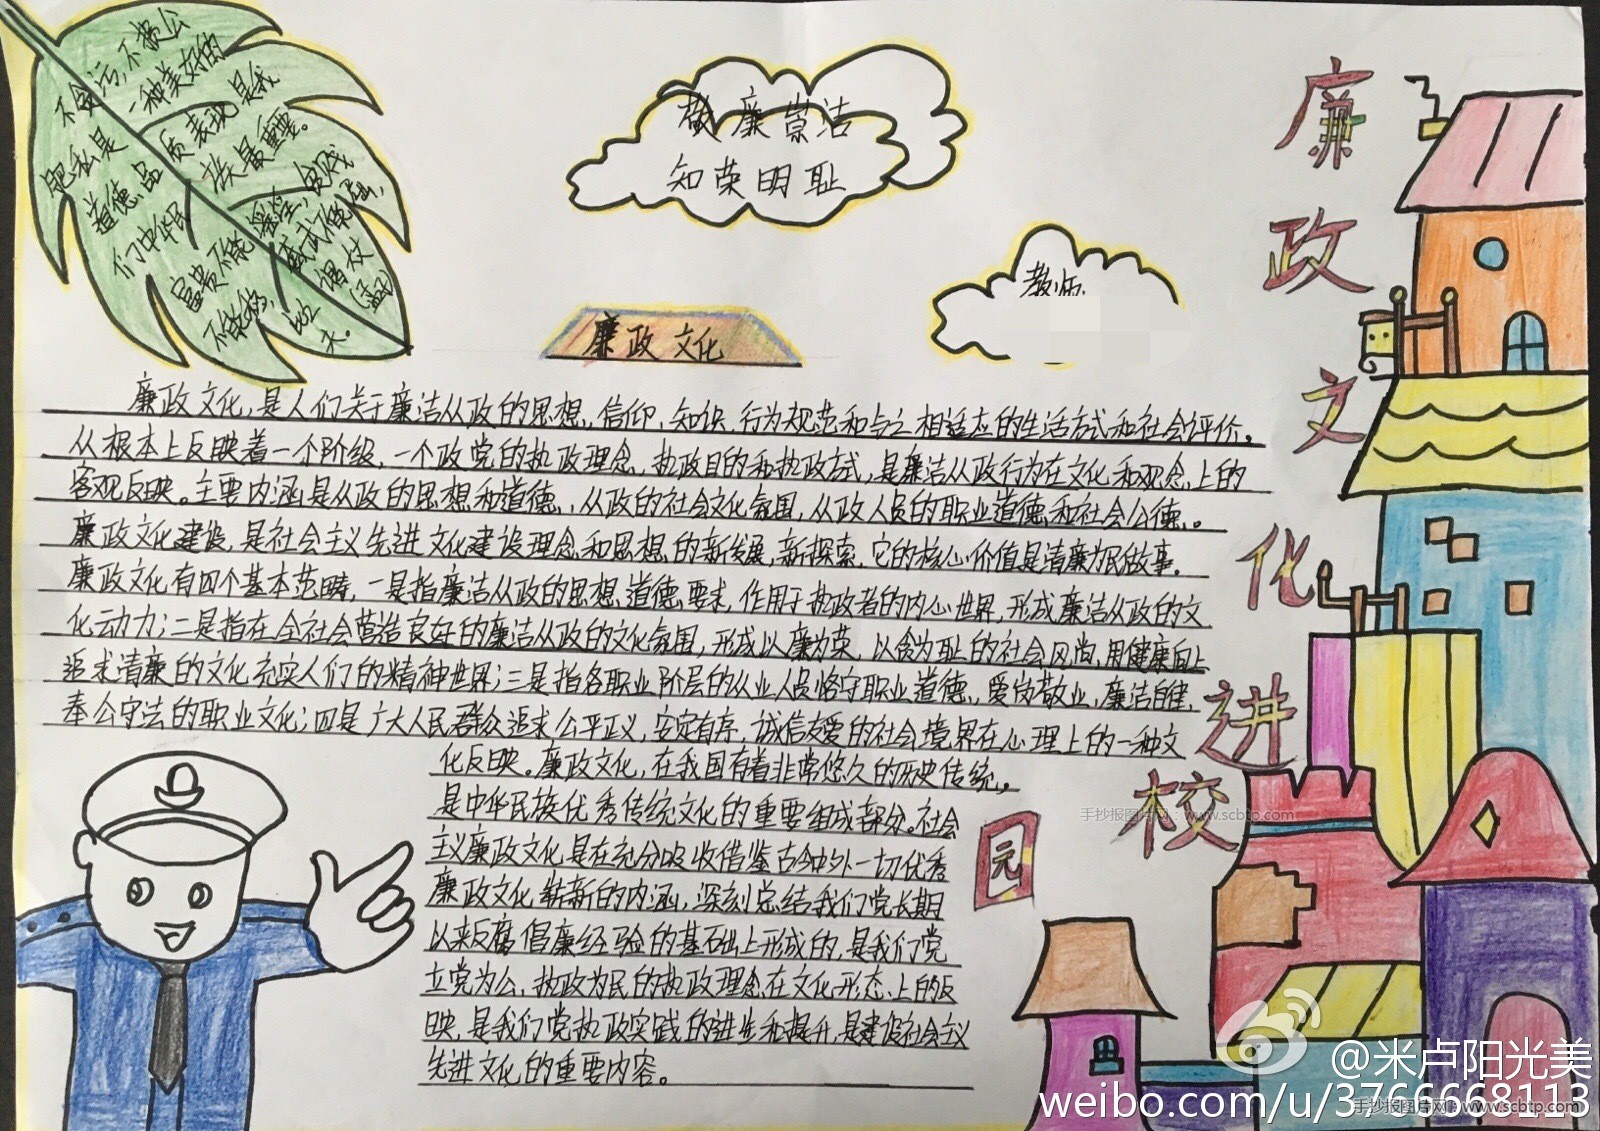 不贪污,不损公
肥私是一种美好的
道德品质,表我是我
们中华民族最重要。
富贵不能淫,贫贱
不能移,威武不能屈,
此谓大
夫。
敬廉崇洁
知荣明耻
教师
廉政文化
廉政文化进校园
廉政文化,是人们关于廉洁从政的思想,信仰,知识,行为规范和与之相适应的生活方式和社会评价。
从根本上反映着一个阶级,一个政党的执政理念,执政目的和执政方式,是廉洁从政行为在文化和观念上的
客观反映。主要内涵是从政的思想和道德,从政的社会文化氛围,从政人员的职业道德和社会公德。
廉政文化建设,是社会主义先进文化建设理念和思想的新发展,新探索,它的核心价值是清廉为民做事。
廉政文化有四个基本范畴,一是指廉洁从政的思想道德要求,作用于执政者的内心世界,形成廉洁从政的文
化动力;二是指在全社会营造良好的廉洁从政的文化氛围,形成以廉为荣,以贪为耻的社会风尚,用健康向上
追求清廉的文化充实人们的精神世界;三是指各职业阶层的从业人员恪守职业道德,爱岗敬业,廉洁自律,
奉公守法的职业文化;四是广大人民群众追求公平正义,安定有序,诚信友爱的社会境界在心理上的一种文
化反映。廉政文化,在我国有着非常悠久的历史传统,
是中华民族优秀传统文化的重要组成部分。社会
主义廉政文化是在充分吸收借鉴古今中外一切优秀
廉政文化崭新的内涵,深刻总结我们党长期
以来反腐倡廉经验的基础上形成的,是我们党
立党为公,执政为民的执政理念在文化形态上的反
映,是我们党执政实践的进步和提升,是建设社会主义
先进文化的重要内容。
手抄报图片网:www.scbtp.com
@米卢阳光美
weibo.com/u/3766668113
手抄报图片网:www.scbtp.com